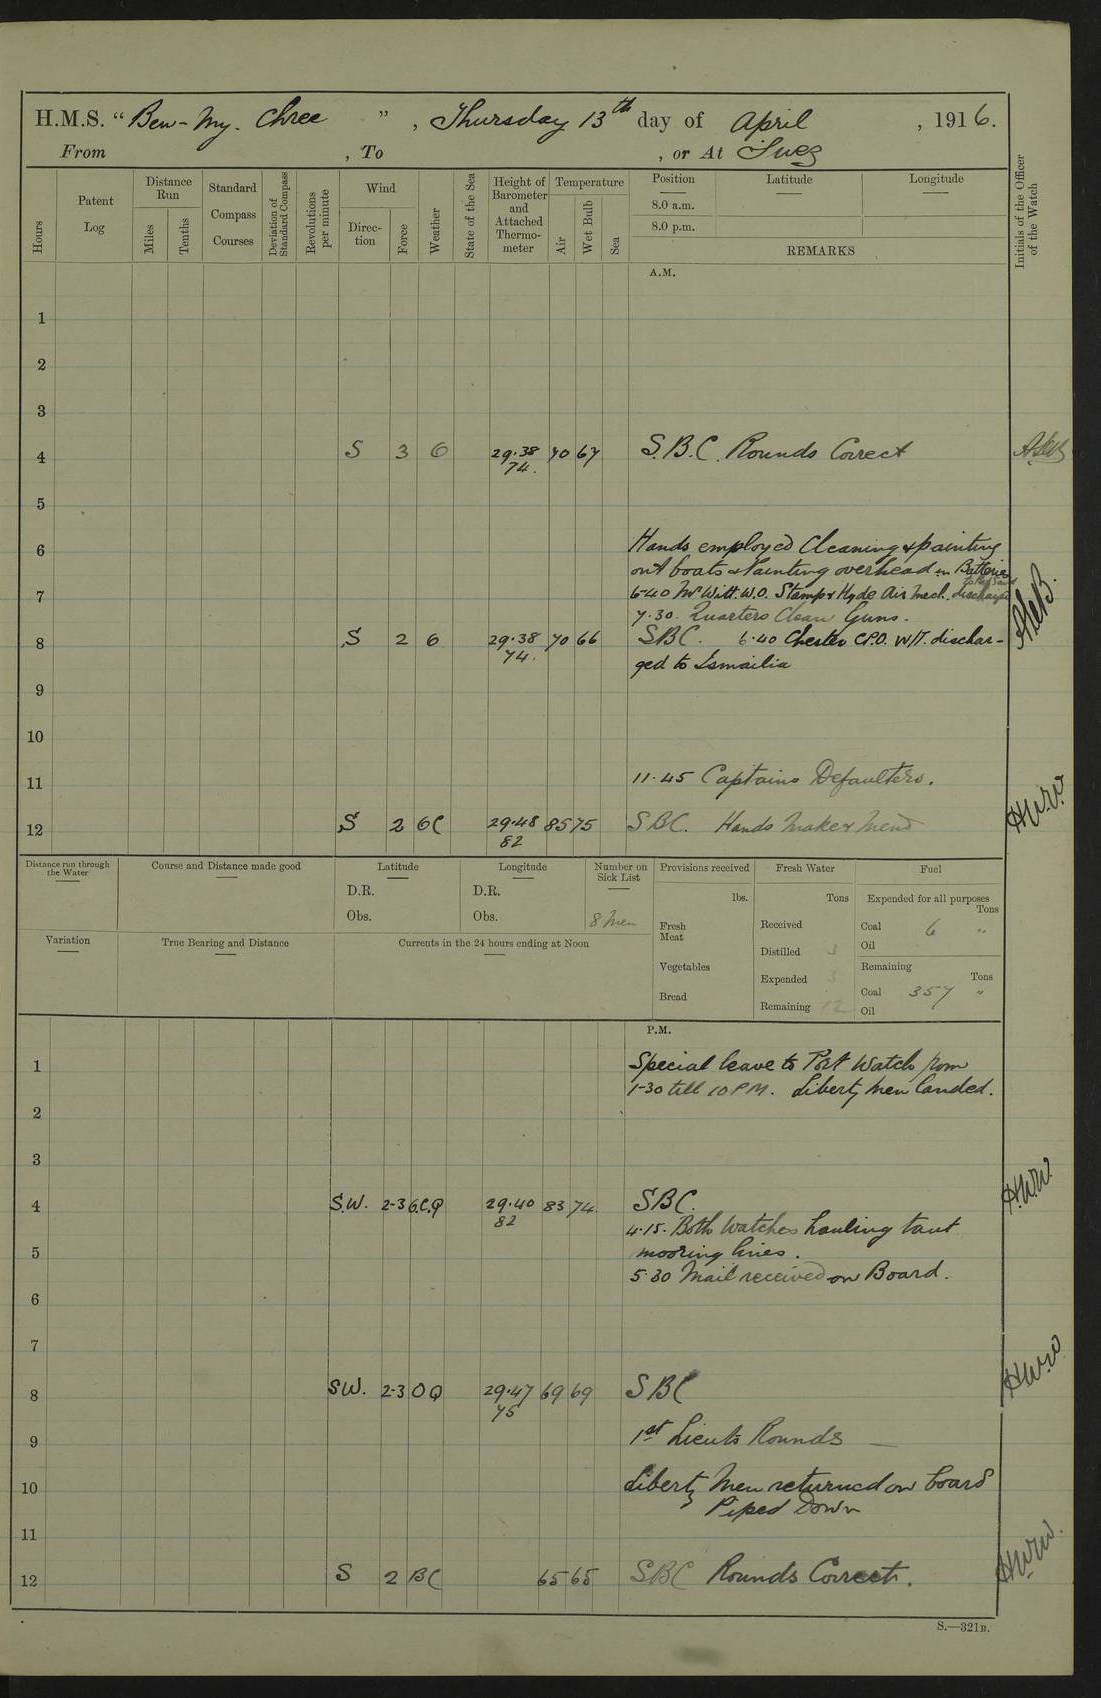 H.M.S. “ Ben-my-Chree ” , Thursday 13th day of April , 1916.
From , To , or At Suez
Hours
Patent Log
Distance Run
Miles
Tenths
Standard Compass Courses
Deviation of Standard Compass
Revolutions per minute
Wind
Direc-tion
Force
Weather
State of the Sea
Height of Barometer and Attached Thermo-meter
Temperature
Air
Wet Bulb
Sea
Position
Latitude
Longitude
8.0 a.m.
8.0 p.m.
REMARKS
Initials of the Officer of the Watch
A.M.
1
2
3
4 S 3 6 29.38 70 67 S.B.C. Rounds Correct
74.
5
Hands employed Cleaning & painting
6
out boats & Painting overhead in Batteries
7 6-40 Mr Witt. W.O. Stamp & Hyde Air Mech. discharged
7.30. Quarters Clean Guns.
8 S 2 6 29.38 70 66 SBC. 6.40 Chester C.P.O. W/T. dischar-
74.
ged to Ismailia
9
10
11 11.45 Captains Defaulters.
12 S 2 6C 29.48 85 75 SBC. Hands Make & Mend H.W.W.
82
Distance run through the Water
Course and Distance made good
Latitude
D.R.
Obs.
Longitude
D.R.
Obs.
Number on Sick List
8 Men
Provisions received
lbs.
Fresh Meat
Vegetables
Bread
Fresh Water
Tons
Received
Distilled 3
Expended 3
Remaining 12
Fuel
Expended for all purposes
Tons
Coal 6 "
Oil
Remaining
Tons
Coal 357 "
Oil
Variation
True Bearing and Distance
Currents in the 24 hours ending at Noon
P.M.
1 Special leave to Port Watch from
1-30 till 10 PM. Liberty men landed.
2
3
4 S.W. 2-3 6.C.Q 29.40 83 74 SBC. H.W.W.
82
4.15. Both Watches hauling taut
5 mooring lines.
5.30 Mail received on Board.
6
7
8 SW. 2-3 O Q 29.47 69 69 SBC H.W.W.
75
9 1st Lieuts Rounds
10 Liberty Men returned on board
Piped Down
11
12 S 2 BC 65 65 SBC Rounds Correct. H.W.W.
S.—321B.